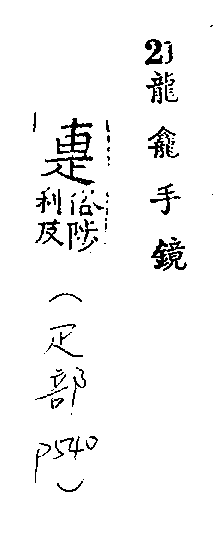 21 龍龕手鏡
俗陟
利反
(疋部 P540)